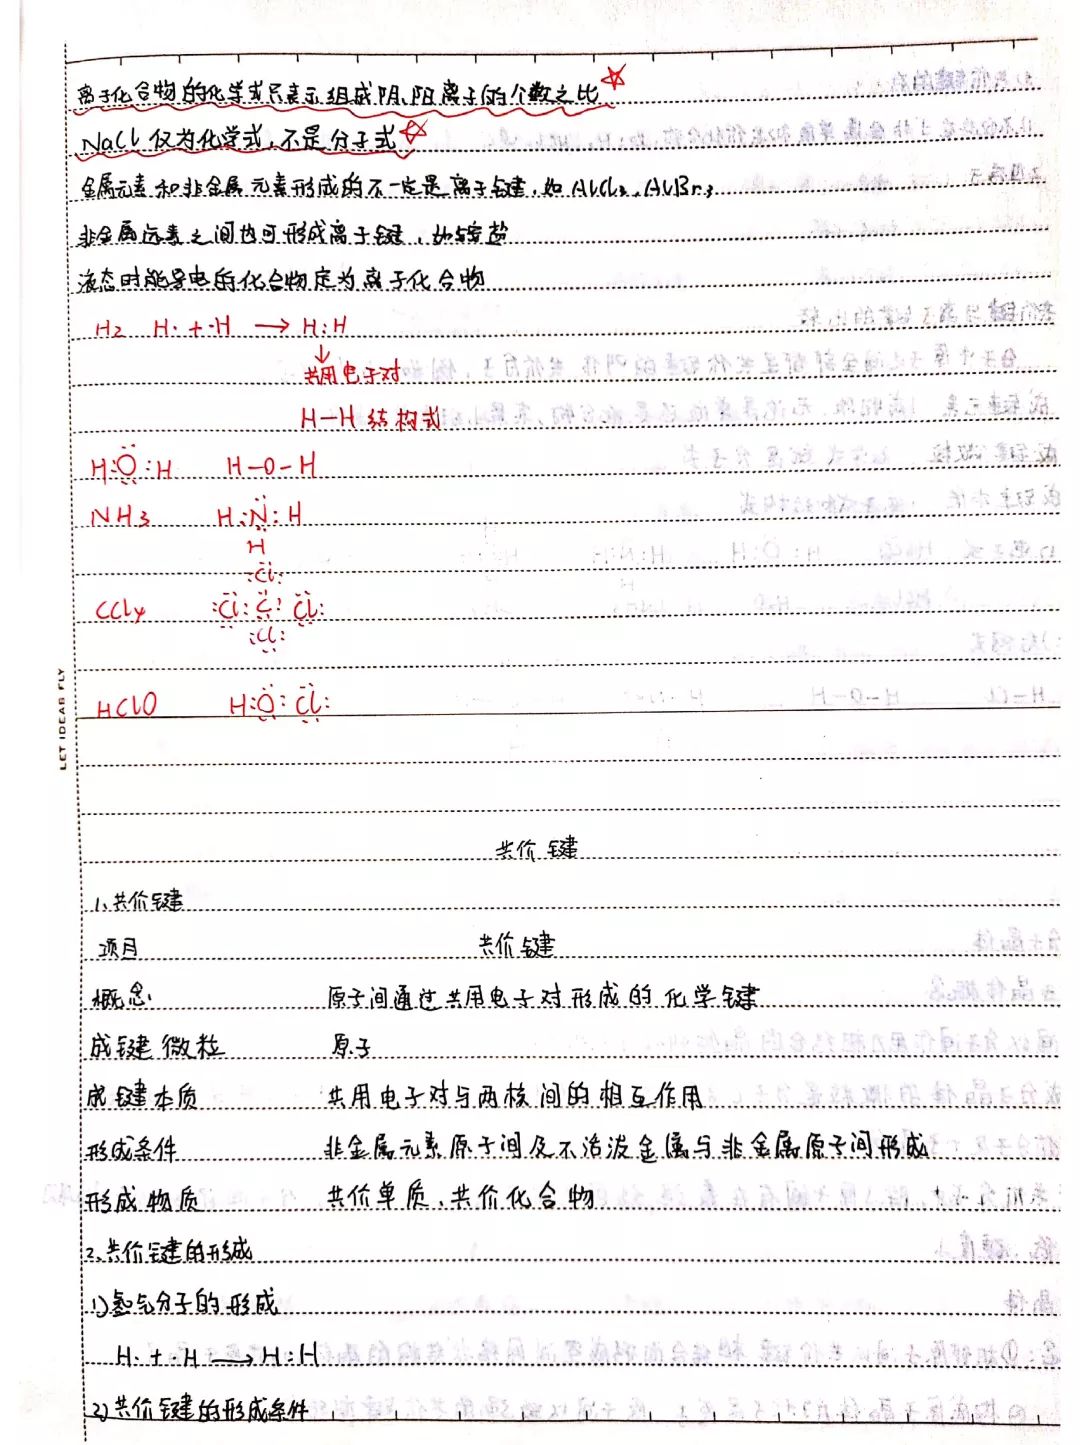 离子化合物的化学式只表示组成阴、阳离子的个数之比
NaCl 仅为化学式,不是分子式
金属元素和非金属元素形成的不一定是离子键,如 AlCl₃、AlBr₃
非金属元素之间也可形成离子键,如铵盐
液态时能导电的化合物定为离子化合物
H₂ H· + ·H → H:H
↓
共用电子对
H—H 结构式
H:O:H H-O-H
NH₃ H:N:H
H
:Cl:
CCl₄ :Cl:C:Cl:
:Cl:
HClO H:O:Cl:
LET IDEAS FLY
共价键
1、共价键
项目 共价键
概念 原子间通过共用电子对形成的化学键
成键微粒 原子
成键本质 共用电子对与两核间的相互作用
形成条件 非金属元素原子间及不活泼金属与非金属原子间形成
形成物质 共价单质、共价化合物
2、共价键的形成
1)氢气分子的形成
H· + ·H → H:H
2)共价键的形成条件